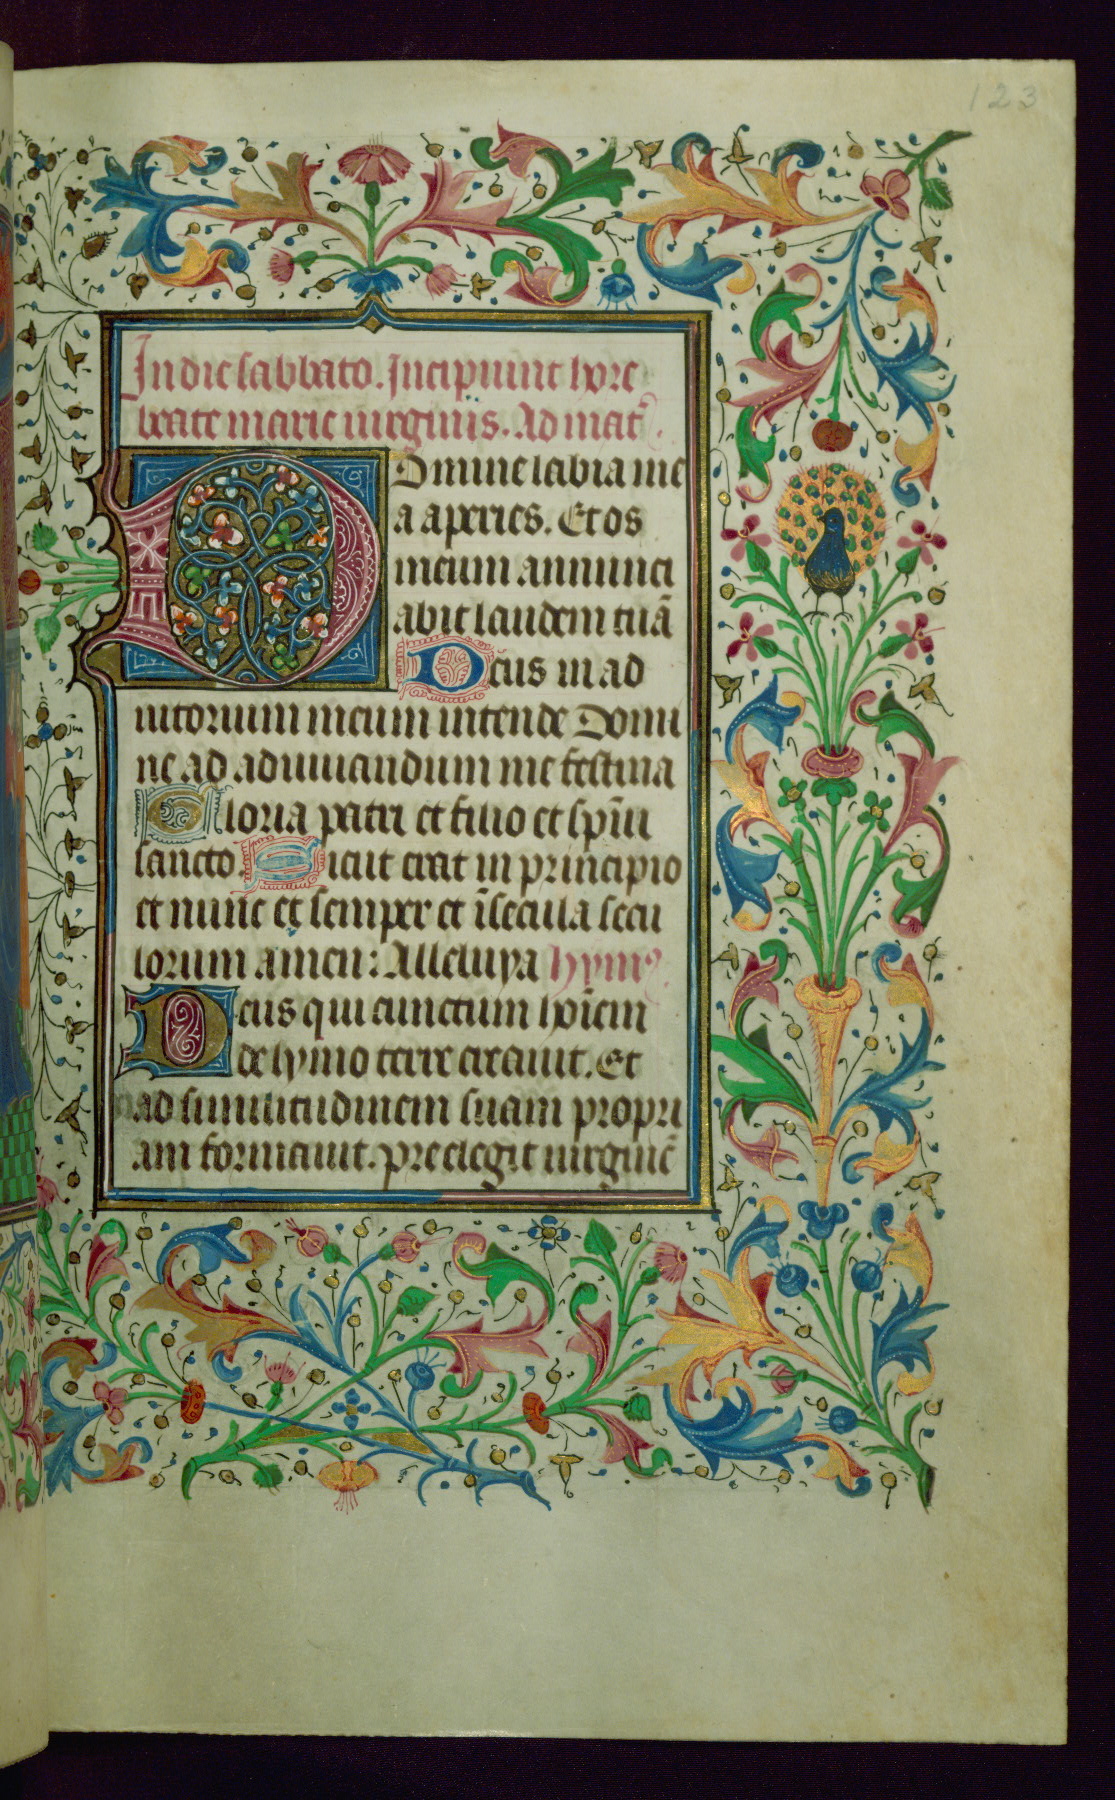 123
In die sabbato. Incipiunt hore
beate marie uirginis. Ad mat̄.
Domine labia me
a aperies. Et os
meum annunci
abit laudem tuā
Deus in ad
iutorium meum intende Domi
ne ad adiuuandum me festina
Gloria patri et filio et sp̄ui
sancto. Sicut erat in principio
et nunc et semper et ī secula secu
lorum amen: Alleluya hymꝰ.
Deus qui cunctum hoīem
de lymo terre creauit. Et
ad similitudinem suam propri
am formauit. preelegit uirginē